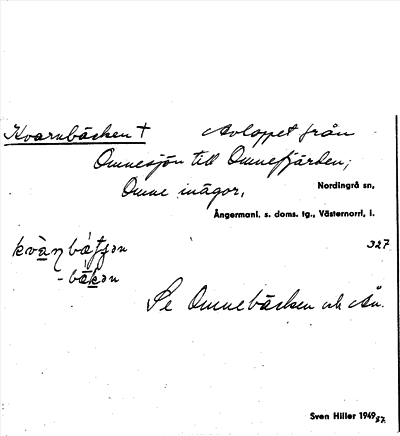 Kvarnbäcken † Avloppet från
Omnesjön till Omnefjärden,
Omne inägor, Nordingrå sn,
Ångermanl. s. doms. tg., Västernorrl. l.
327
-båkən
Se Omnebäcken och Ån.
Sven Hiller 1949